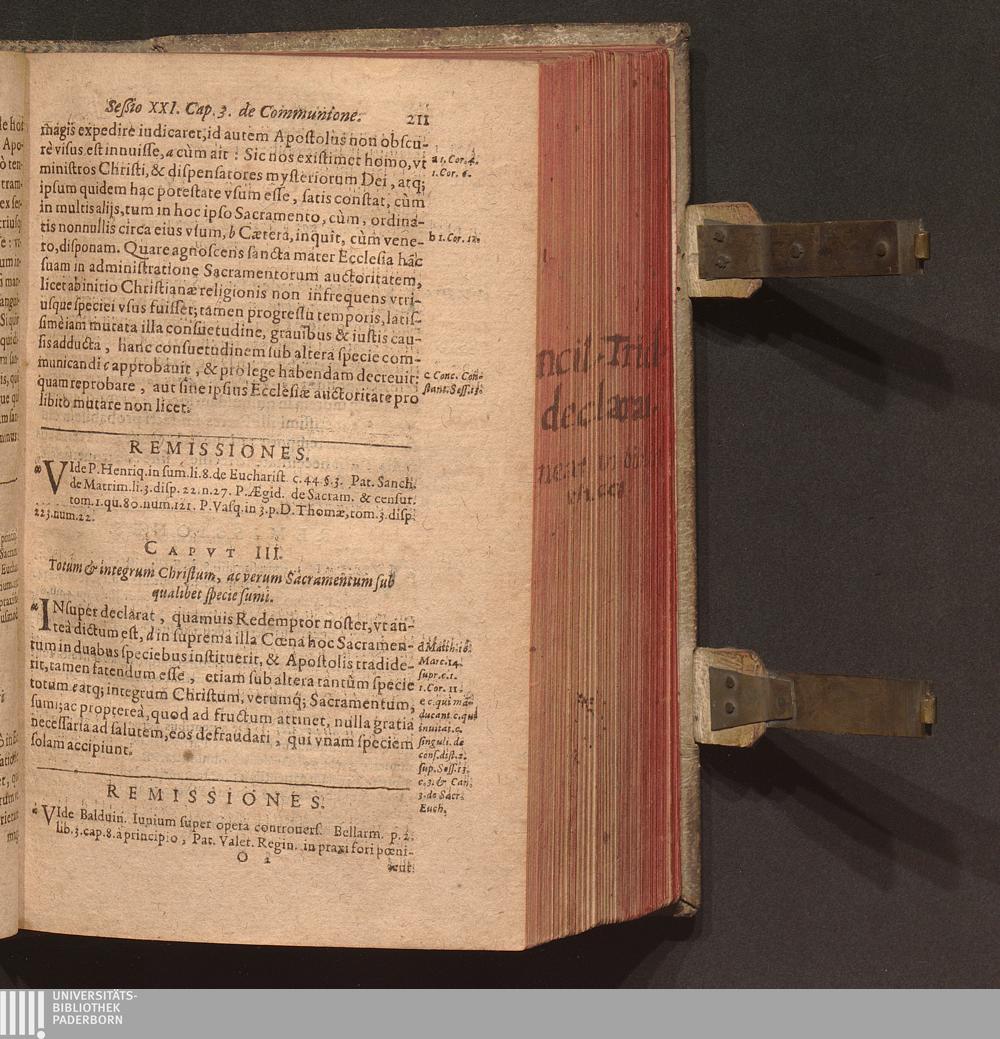 Sessio XXI. Cap. 3. de Communione. 211
magis expedire iudicaret, id autem Apostolus non obscu-
rè visus est innuisse, a cùm ait : Sic nos existimet homo, vt
ministros Christi, & dispensatores mysteriorum Dei, atq;
ipsum quidem hac potestate vsum esse, satis constat, cùm
in multis alijs, tum in hoc ipso Sacramento, cùm, ordina-
tis nonnullis circa eius vsum, b Cætera, inquit, cùm vene-
ro, disponam. Quare agnoscens sancta mater Ecclesia hãc
suam in administratione Sacramentorum auctoritatem,
licet ab initio Christianæ religionis non infrequens vtri-
usque speciei vsus fuisset; tamen progressu temporis, latis-
simè iam mutata illa consuetudine, grauibus & iustis cau-
sis adducta, hanc consuetudinem sub altera specie com-
municandi c approbauit, & pro lege habendam decreuit:
quam reprobare, aut sine ipsius Ecclesiæ auctoritate pro
libito mutare non licet.
a 1. Cor. 4.
1. Cor. 6.
b 1. Cor. 12.
c Conc. Con-
stant. Sess. 13.
REMISSIONES.
VIde P. Henriq. in sum. li. 8. de Eucharist. c. 44 §. 3. Pat. Sanch.
de Matrim. li. 3. disp. 22. n. 27. P. Ægid. de Sacram. & censur.
tom. 1. qu. 80. num. 121. P. Vasq. in 3. p. D. Thomæ, tom. 3. disp.
223. num. 22.
CAPVT III.
Totum & integrum Christum, ac verum Sacramentum sub
qualibet specie sumi.
INsuper declarat, quamuis Redemptor noster, vt an-
teà dictum est, d in suprema illa Cœna hoc Sacramen-
tum in duabus speciebus instituerit, & Apostolis tradide-
rit, tamen fatendum esse, etiam sub altera tantùm specie
totum e atq; integrum Christum, verumq; Sacramentum,
sumi; ac propterea, quod ad fructum attinet, nulla gratia
necessaria ad salutem, eos defraudari, qui vnam speciem
solam accipiunt.
d Matth. 16.
Marc. 14.
supr. c. 1.
1. Cor. 11.
e c. qui mã-
ducant. c. qui
inuitat. c.
singuli. de
cons. dist. 2.
sup. Sess. 13.
c. 3. & Can.
3. de Sacr.
Euch.
REMISSIONES.
VIde Balduin. Iunium super opera controuers. Bellarm. p. 2.
lib. 3. cap. 8. à principio, Pat. Valer. Regin. in praxi fori pœni-
O 2
tent.
ncil. Trid.
declara.
UNIVERSITÄTS-
BIBLIOTHEK
PADERBORN